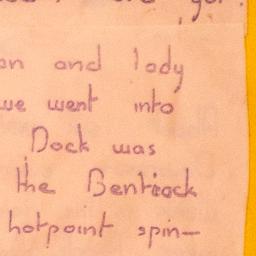 on and lady
we went into
Dock was
the Bentcock
hotpoint spin—